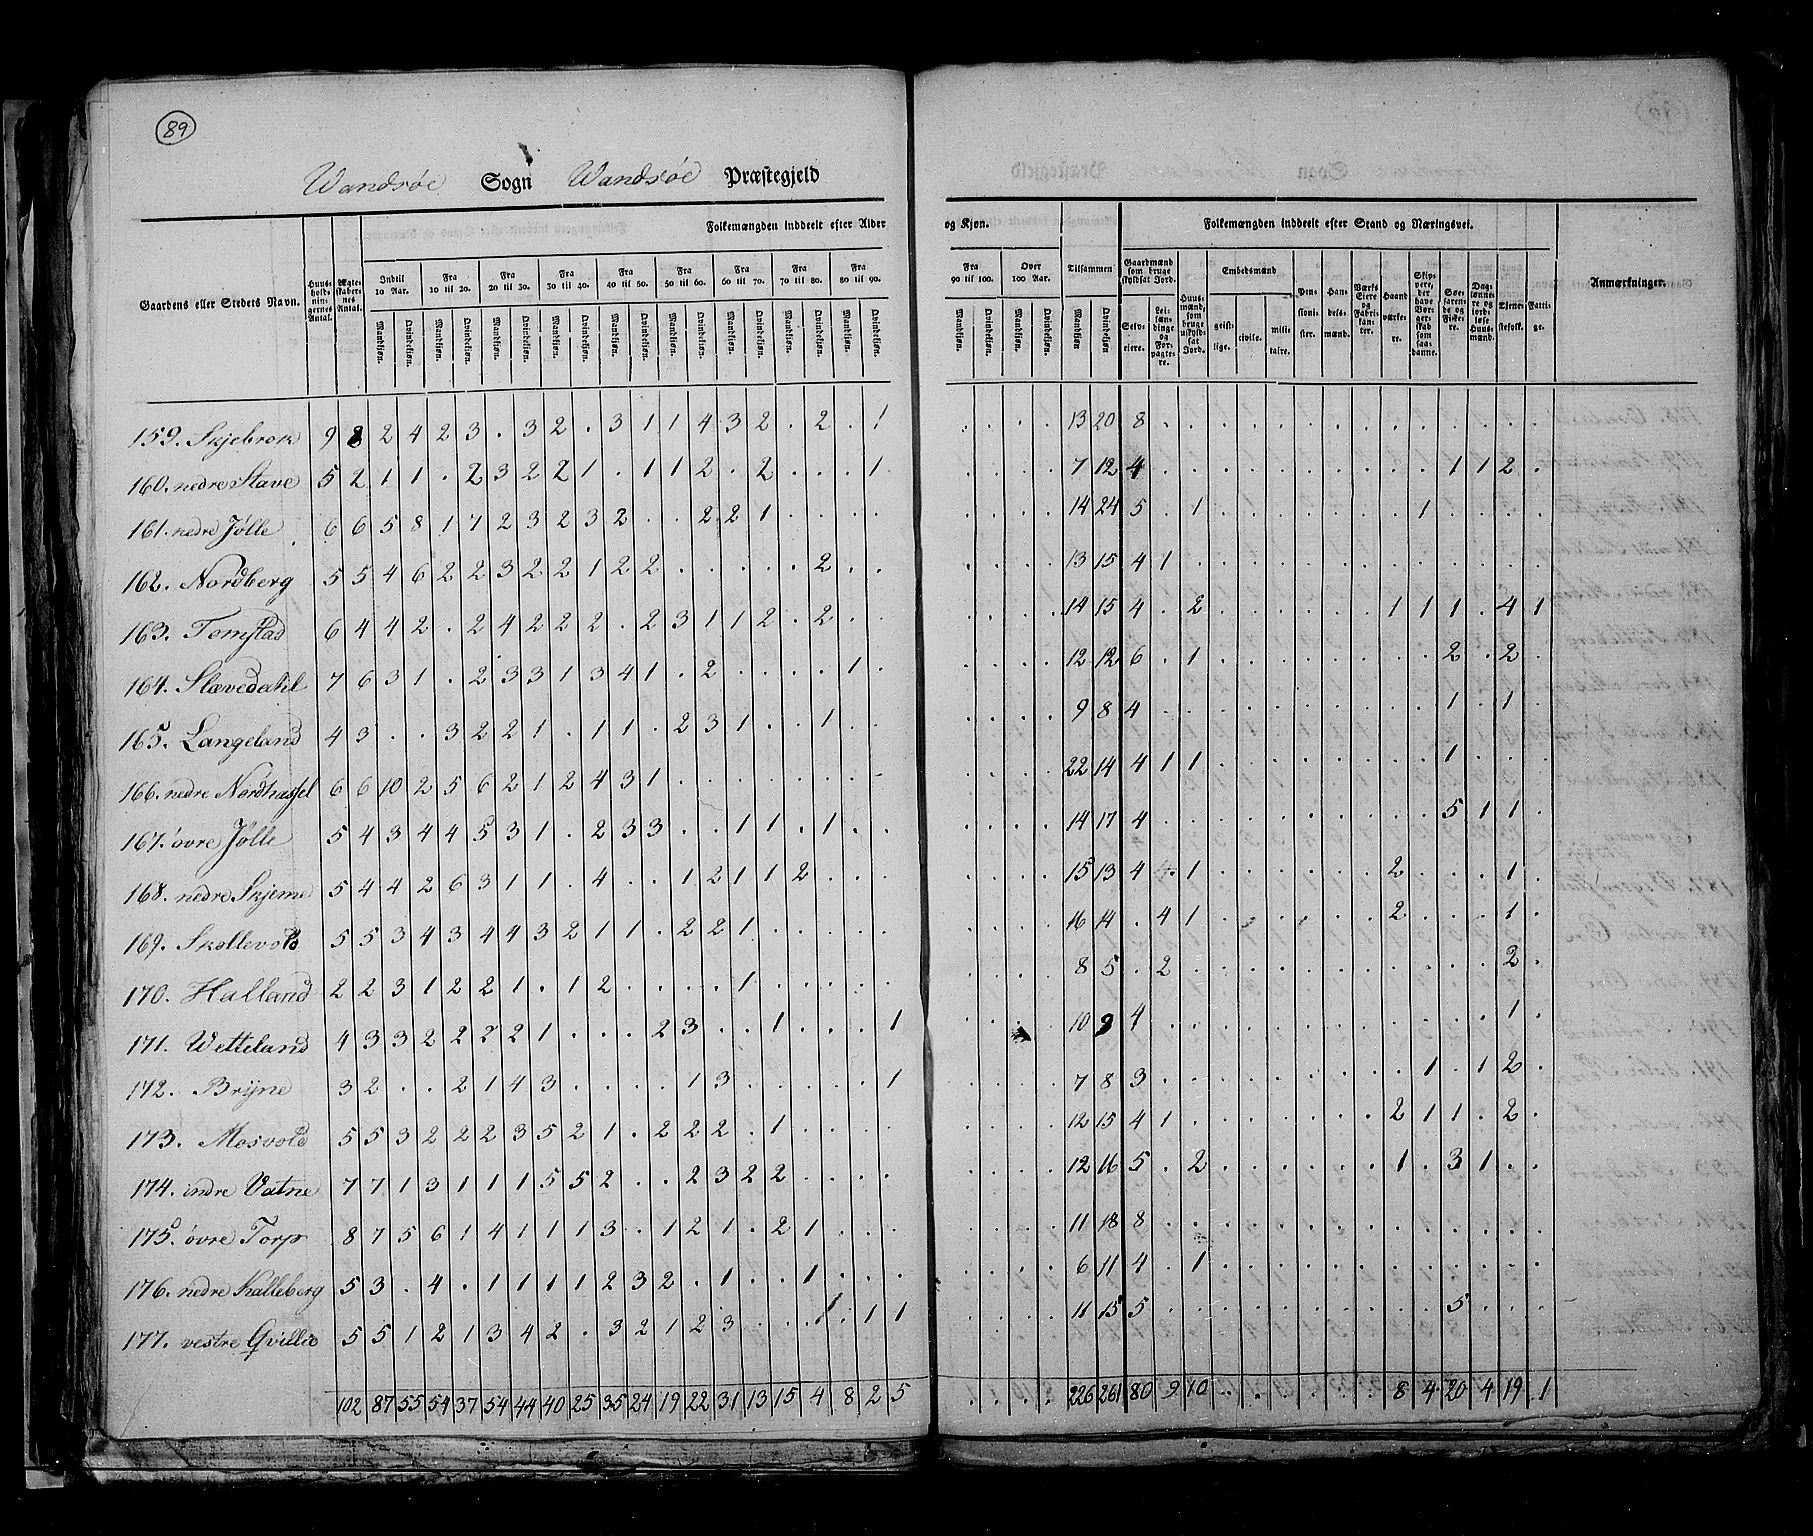 89
Wandsøe Sogn Wandsøe Præstegjeld
Folkemængden inddeelt efter Alder og Kjøn. Folkemængden inddeelt efter Stand og Næringsvei.
Gaardens eller Stedets Navn. Huusholdningernes Antal. Ægteskabernes Antal. Indtil 10 Aar. Fra 10 til 20. Fra 20 til 30. Fra 30 til 40. Fra 40 til 50. Fra 50 til 60. Fra 60 til 70. Fra 70 til 80. Fra 80 til 90. Fra 90 til 100. Over 100 Aar. Tilsammen Gaardmænd som bruge skyldsat Jord. Huusmænd, som bruge uskyldsat Jord. Embedsmænd Pensionister. Handelsmænd. Værks Eiere og Fabrikanter. Haandværkere. Skippere, der have Borgerskab som saadanne. Søefarende og Fiskere. Daglønnere og jordløse Huusmænd. Tjenestefolk. Fattige. Anmærkninger.
Mandkjøn. Qvindekjøn. Mandkjøn. Qvindekjøn. Mandkjøn. Qvindekjøn. Mandkjøn. Qvindekjøn. Mandkjøn. Qvindekjøn. Mandkjøn. Qvindekjøn. Mandkjøn. Qvindekjøn. Mandkjøn. Qvindekjøn. Mandkjøn. Qvindekjøn. Mandkjøn. Qvindekjøn. Mandkjøn. Qvindekjøn. Mandkjøn Qvindekjøn. Selveiere. Leilændinge og Forpagtere. geistlige. civile. militaire.
159. Skjebrok 9 8 2 4 2 3 . 3 2 . 3 1 1 4 3 2 . 2 . 1 . . . . 13 20 8 . . . . . . . . . . . . . .
160. nedre Slave 5 2 1 1 . 2 3 2 2 1 . 1 1 2 . 2 . . . 1 . . . . 7 12 4 . . . . . . . . . . 1 1 2 .
161. nedre Jølle 6 6 5 8 1 7 2 3 2 3 2 . . 2 2 1 . . . . . . . . 14 24 5 . 1 . . . . . . . 1 . . . .
162. Nordberg 5 5 4 6 2 2 3 2 2 1 2 2 . . . . . 2 . . . . . . 13 15 4 1 . . . . . . . . . . . . .
163. Tomstad 6 4 4 2 . 2 4 2 2 2 . 2 3 1 1 2 . 2 . . . . . . 14 15 4 . 2 . . . . . . 1 1 1 . 4 1
164. Slavedahl 7 6 3 1 . 2 3 3 1 3 4 1 . 2 . . . . 1 . . . . . 12 12 6 . 1 . . . . . . . . 2 . 2 .
165. Langeland 4 3 . . 3 2 2 1 . 1 1 . 2 3 1 . . 1 . . . . . . 9 8 4 . . . . . . . . . . 1 . 1 .
166. nedre Nordhassel 6 6 10 2 5 6 2 1 2 4 3 1 . . . . . . . . . . . . 22 14 4 1 1 . . . . . . . . 1 . . .
167. øvre Jølle 5 4 3 4 4 5 3 1 . 2 3 3 . . 1 1 . 1 . . . . . . 14 17 4 . . . . . . . . . . 5 1 1 .
168. nedre Skjeme 5 4 4 2 6 3 1 1 . 4 . . 1 2 1 1 2 . . . . . . . 15 13 4 . 1 . . . . . . 2 . . . 1 .
169. Skollevold 5 5 3 4 3 4 4 3 2 1 1 . 2 2 1 . . . . . . . . . 16 14 . 4 1 . . . . . . 2 . . . 1 .
170. Halland 2 2 3 1 2 2 1 . 1 2 . . . . 1 . . . . . . . . . 8 5 . 2 . . . . . . . . . . . 2 .
171. Wetteland 4 3 3 2 2 2 2 1 . . . 2 3 . . 1 . . . 1 . . . . 10 9 4 . . . . . . . . . . . . 1 .
172. Brÿne 3 2 . . 2 1 4 3 . . . . 1 3 . . . . . 1 . . . . 7 8 3 . . . . . . . . . 1 . 1 2 .
173. Mosvold 5 5 3 2 2 2 3 5 2 1 . 2 2 2 . 1 . . . . . . . . 12 15 4 1 . . . . . . . 2 1 1 . 2 .
174. indre Vatne 7 7 1 3 1 1 1 5 5 2 . . 2 3 2 2 . . . . . . . . 12 16 5 . 2 . . . . . . 1 . 3 1 . .
175. øvre Torp 8 7 5 6 1 4 1 1 1 3 . 1 2 1 . 2 1 . . . . . . . 11 18 8 . . . . . . . . . . . . . .
176. nedre Kalleberg 5 3 . 4 . 1 1 1 1 2 3 2 . 1 . . 1 . . . . . . . 6 11 4 . 1 . . . . . . . . . . . .
177. vestre Qvillie 5 5 1 2 1 3 4 2 . 3 2 1 2 3 . . . 1 . 1 1 . . . . 11 15 5 . . . . . . . . . . 5 . . .
102 87 55 54 37 54 44 40 25 35 24 19 22 31 13 15 4 8 2 5 . . . . 226 261 80 9 10 . . . . . . 8 4 20 4 19 1